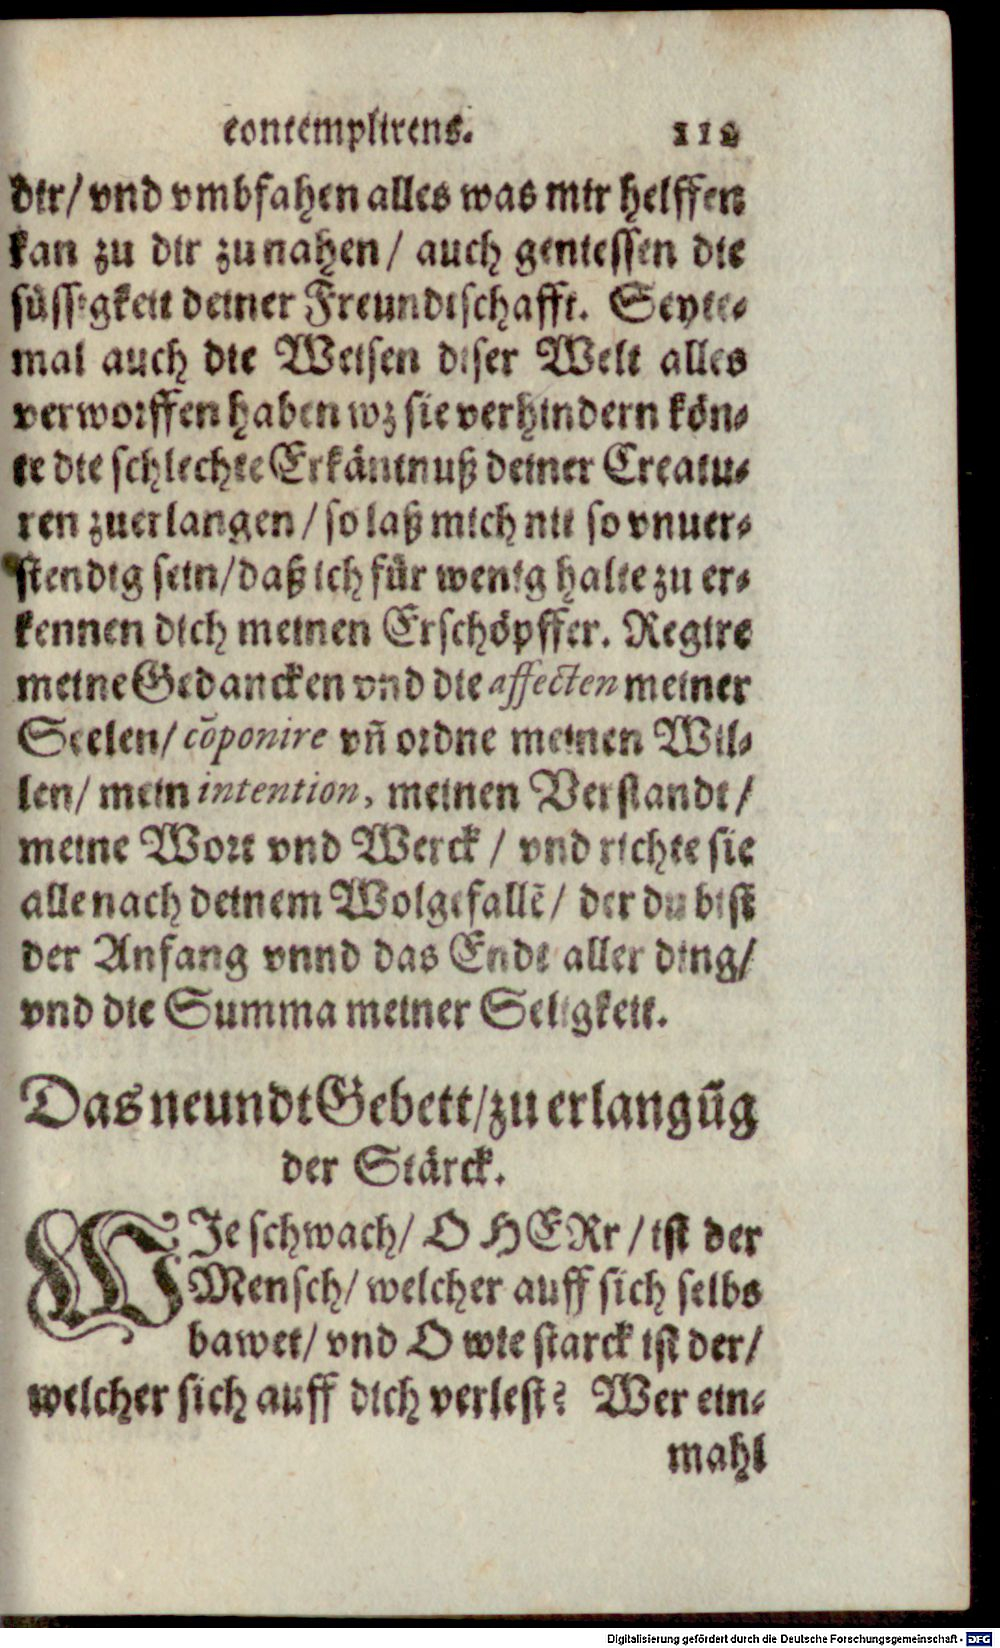 contemplirens. 112
dir/ vnd vmbfahen alles was mir helffen
kan zu dir zu nahen/ auch geniessen die
süssigkeit deiner Freundtschafft. Seyte-
mal auch die Weisen diser Welt alles
verworffen haben wz sie verhindern kön-
te die schlechte Erkäntnuß deiner Creatu-
ren zuerlangen/ so laß mich nit so vnuer-
stendig sein/ daß ich für wenig halte zu er-
kennen dich meinen Erschöpffer. Regire
meine Gedancken vnd die affecten meiner
Seelen/ cōponire vñ ordne meinen Wil-
len/ mein intention, meinen Verstandt/
meine Wort vnd Werck/ vnd richte sie
alle nach deinem Wolgefallē/ der du bist
der Anfang vnnd das Ende aller ding/
vnd die Summa meiner Seligkeit.
Das neundt Gebett/ zu erlangūg
der Stärck.
WIe schwach/ O HERr/ ist der
Mensch/ welcher auff sich selbs
bawet/ vnd O wie starck ist der/
welcher sich auff dich verlest? Wer ein-
mahl
Digitalisierung gefördert durch die Deutsche Forschungsgemeinschaft - DFG